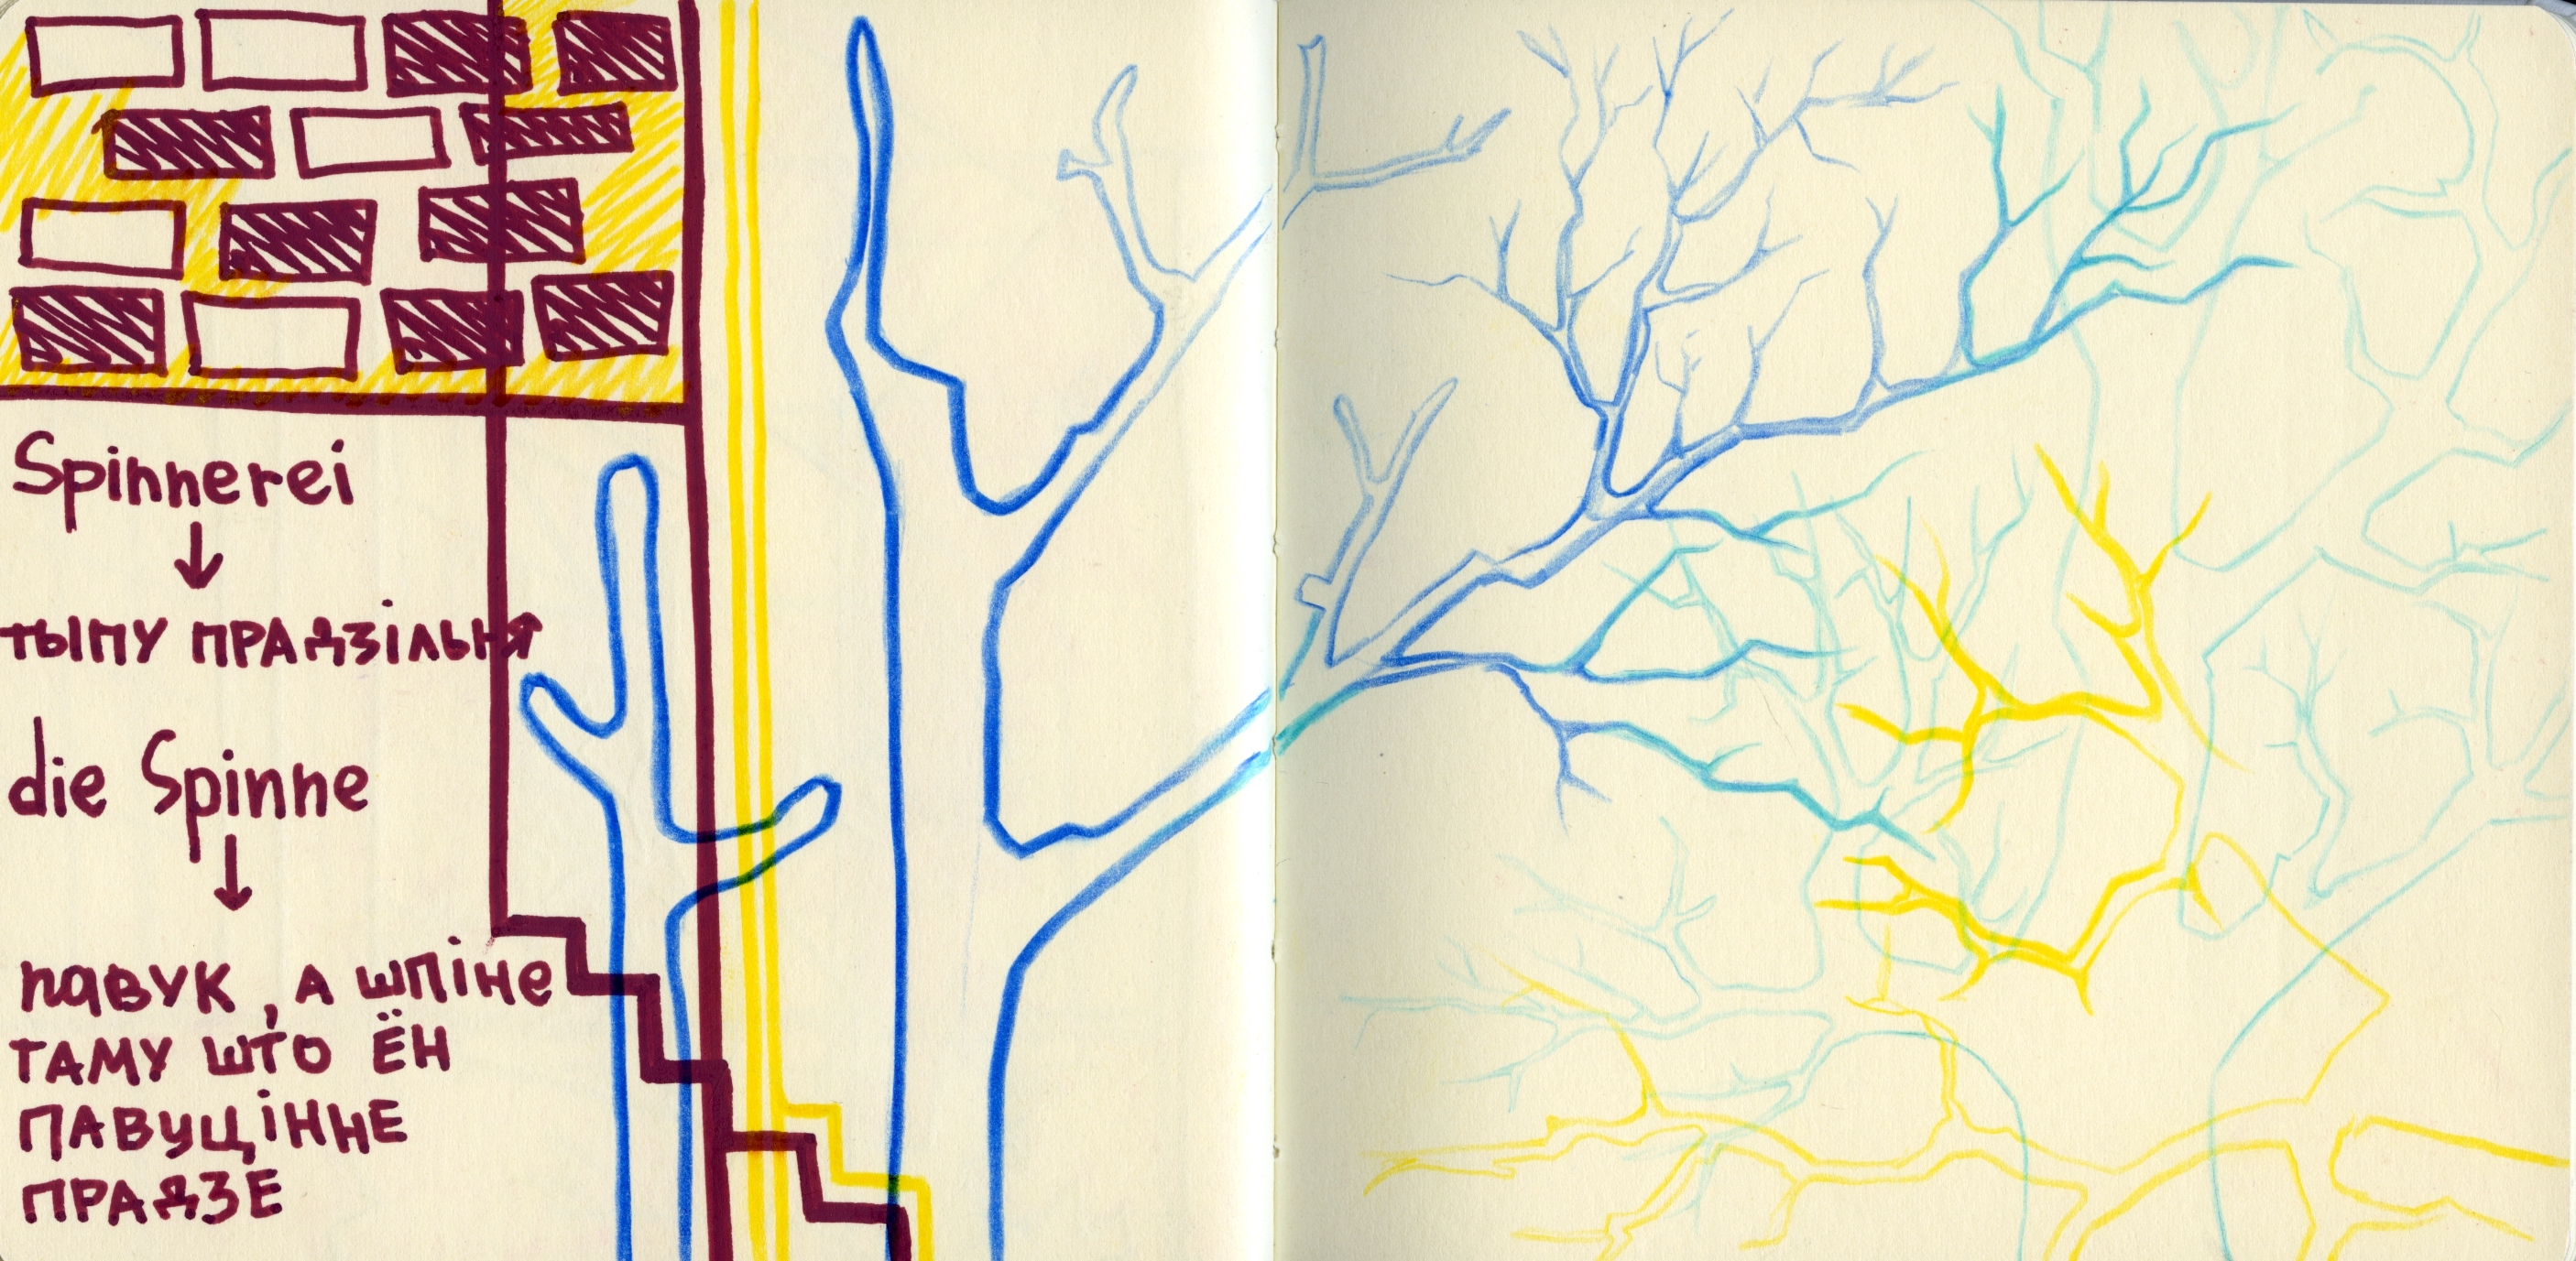 Spinnerei
↓
тыпу прадзільня
die Spinne
↓
павук, а шпіне
таму што ён
павуцінне
прадзе